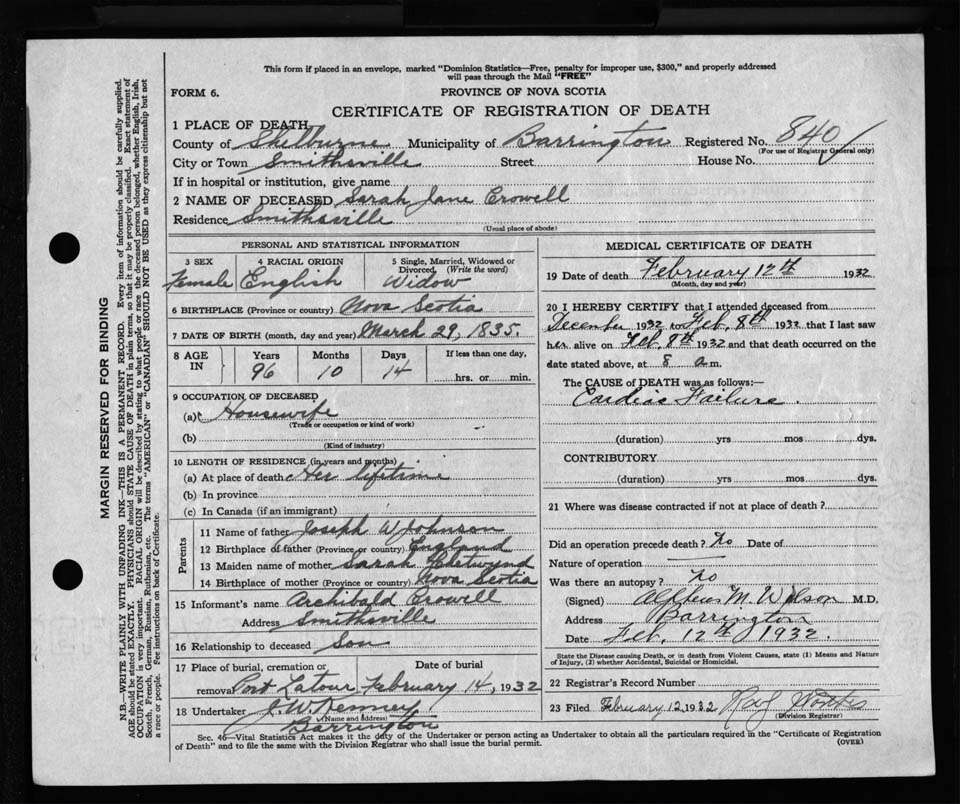 This form if placed in an envelope, marked "Dominion Statistics—Free, penalty for improper use, $300," and properly addressed
will pass through the Mail "FREE"
FORM 6.
PROVINCE OF NOVA SCOTIA
CERTIFICATE OF REGISTRATION OF DEATH
1 PLACE OF DEATH
County of Shelburne Municipality of Barrington Registered No. 840
(For use of Registrar General only)
City or Town Smithsville Street House No.
If in hospital or institution, give name
2 NAME OF DECEASED Sarah Jane Crowell
Residence Smithsville
(Usual place of abode)
PERSONAL AND STATISTICAL INFORMATION
3 SEX 4 RACIAL ORIGIN 5 Single, Married, Widowed or
Divorced. (Write the word)
Female English Widow
6 BIRTHPLACE (Province or country) Nova Scotia
7 DATE OF BIRTH (month, day and year) March 29, 1835
8 AGE Years Months Days If less than one day,
IN 96 10 14 hrs. or min.
9 OCCUPATION OF DECEASED
(a) Housewife
(Trade or occupation or kind of work)
(b)
(Kind of industry)
10 LENGTH OF RESIDENCE (in years and months)
(a) At place of death Her lifetime
(b) In province
(c) In Canada (if an immigrant)
Parents
11 Name of father Joseph W Johnson
12 Birthplace of father (Province or country) England
13 Maiden name of mother Sarah Chetwynd
14 Birthplace of mother (Province or country) Nova Scotia
15 Informant's name Archibald Crowell
Address Smithsville
16 Relationship to deceased Son
17 Place of burial, cremation or Date of burial
removal Port Latour February 14, 1932
18 Undertaker J. W. Kenney
(Name and address)
Barrington
MEDICAL CERTIFICATE OF DEATH
19 Date of death February 12th 1932
(Month, day and year)
20 I HEREBY CERTIFY that I attended deceased from
December 1932 to Feb. 8th 1932 that I last saw
her alive on Feb. 8th 1932 and that death occurred on the
date stated above, at 8 a m.
The CAUSE of DEATH was as follows:—
Cardiac Failure.
(duration) yrs mos dys.
CONTRIBUTORY
(duration) yrs mos dys.
21 Where was disease contracted if not at place of death?
Did an operation precede death? No Date of
Nature of operation
Was there an autopsy? No
(Signed) Alpheus M. Wilson M.D.
Address Barrington
Date Feb. 12th 1932.
State the Disease causing Death, or in death from Violent Causes, state (1) Means and Nature
of Injury, (2) whether Accidental, Suicidal or Homicidal.
22 Registrar's Record Number
23 Filed February 12, 1932
(Division Registrar)
Sec. 46—Vital Statistics Act makes it the duty of the Undertaker or person acting as Undertaker to obtain all the particulars required in the "Certificate of Registration
of Death" and to file the same with the Division Registrar who shall issue the burial permit. (OVER)
MARGIN RESERVED FOR BINDING
N.B.—WRITE PLAINLY WITH UNFADING INK—THIS IS A PERMANENT RECORD. Every item of information should be carefully supplied.
AGE should be stated EXACTLY. PHYSICIANS should STATE CAUSE OF DEATH in plain terms, so that it may be properly classified. Exact statement of
OCCUPATION is very important. RACIAL ORIGIN will be described by stating to what people or race the deceased person belonged, whether English, Irish,
Scotch, French, German, Russian, Ruthenian, etc. The terms "AMERICAN" or "CANADIAN" SHOULD NOT BE USED as they express citizenship but not
a race or people. See instructions on back of Certificate.